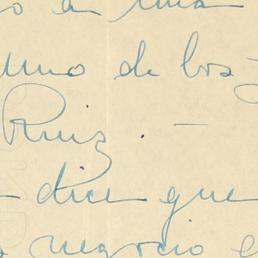 o a una
uno de los
Ruiz. —
— dice que
negocio e